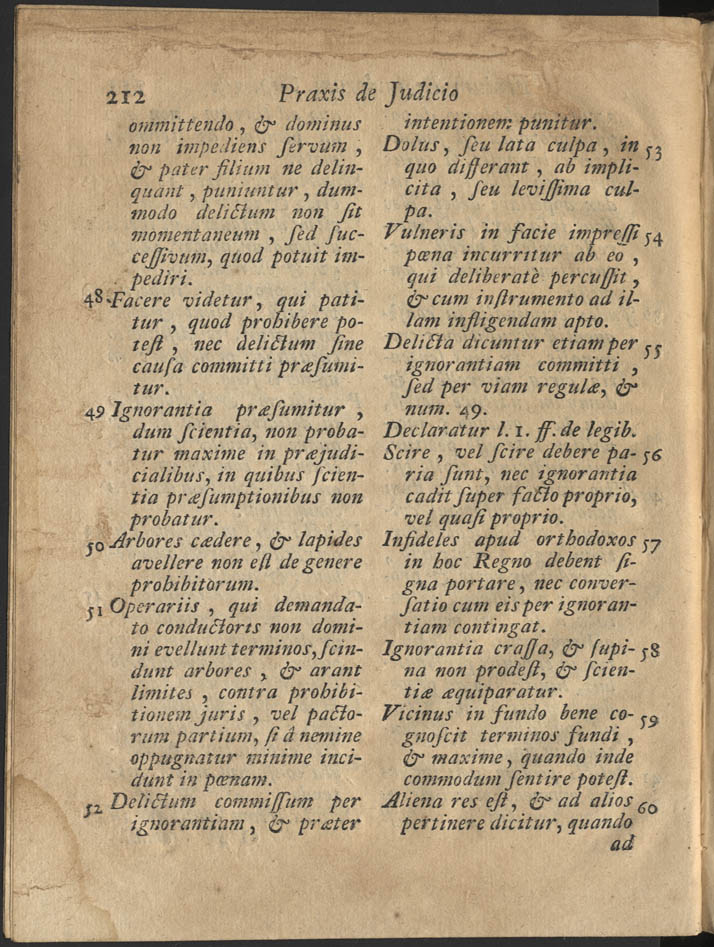 212 Praxis de Judicio
ommittendo, & dominus
non impediens ſervum,
& pater filium ne delin-
quant, puniuntur, dum-
modo delictum non ſit
momentaneum, ſed ſuc-
ceſſivum, quod potuit im-
pediri.
48 Facere videtur, qui pati-
tur, quod prohibere po-
teſt, nec delictum ſine
cauſa committi præſumi-
tur.
49 Ignorantia præſumitur,
dum ſcientia, non proba-
tur maxime in præjudi-
cialibus, in quibus ſcien-
tia præſumptionibus non
probatur.
50 Arbores cædere, & lapides
avellere non eſt de genere
prohibitorum.
51 Operariis, qui demanda-
to conductoris non domi-
ni evellunt terminos, ſcin-
dunt arbores, & arant
limites, contra prohibi-
tionem juris, vel pacto-
rum partium, ſi à nemine
oppugnatur minime inci-
dunt in pœnam.
52 Delictum commiſſum per
ignorantiam, & præter
intentionem punitur.
Dolus, ſeu lata culpa, in 53
quo differant, ab impli-
cita, ſeu leviſſima cul-
pa.
Vulneris in facie impreſſi 54
pœna incurritur ab eo,
qui deliberatè percuſſit,
& cum inſtrumento ad il-
lam infligendam apto.
Delicta dicuntur etiam per 55
ignorantiam committi,
ſed per viam regulæ, &
num. 49.
Declaratur l. 1. ff. de legib.
Scire, vel ſcire debere pa- 56
ria ſunt, nec ignorantia
cadit ſuper facto proprio,
vel quaſi proprio.
Infideles apud orthodoxos 57
in hoc Regno debent ſi-
gna portare, nec conver-
ſatio cum eis per ignoran-
tiam contingat.
Ignorantia craſſa, & ſupi- 58
na non prodeſt, & ſcien-
tiæ æquiparatur.
Vicinus in fundo bene co- 59
gnoſcit terminos fundi,
& maxime, quando inde
commodum ſentire poteſt.
Aliena res eſt, & ad alios 60
pertinere dicitur, quando
ad